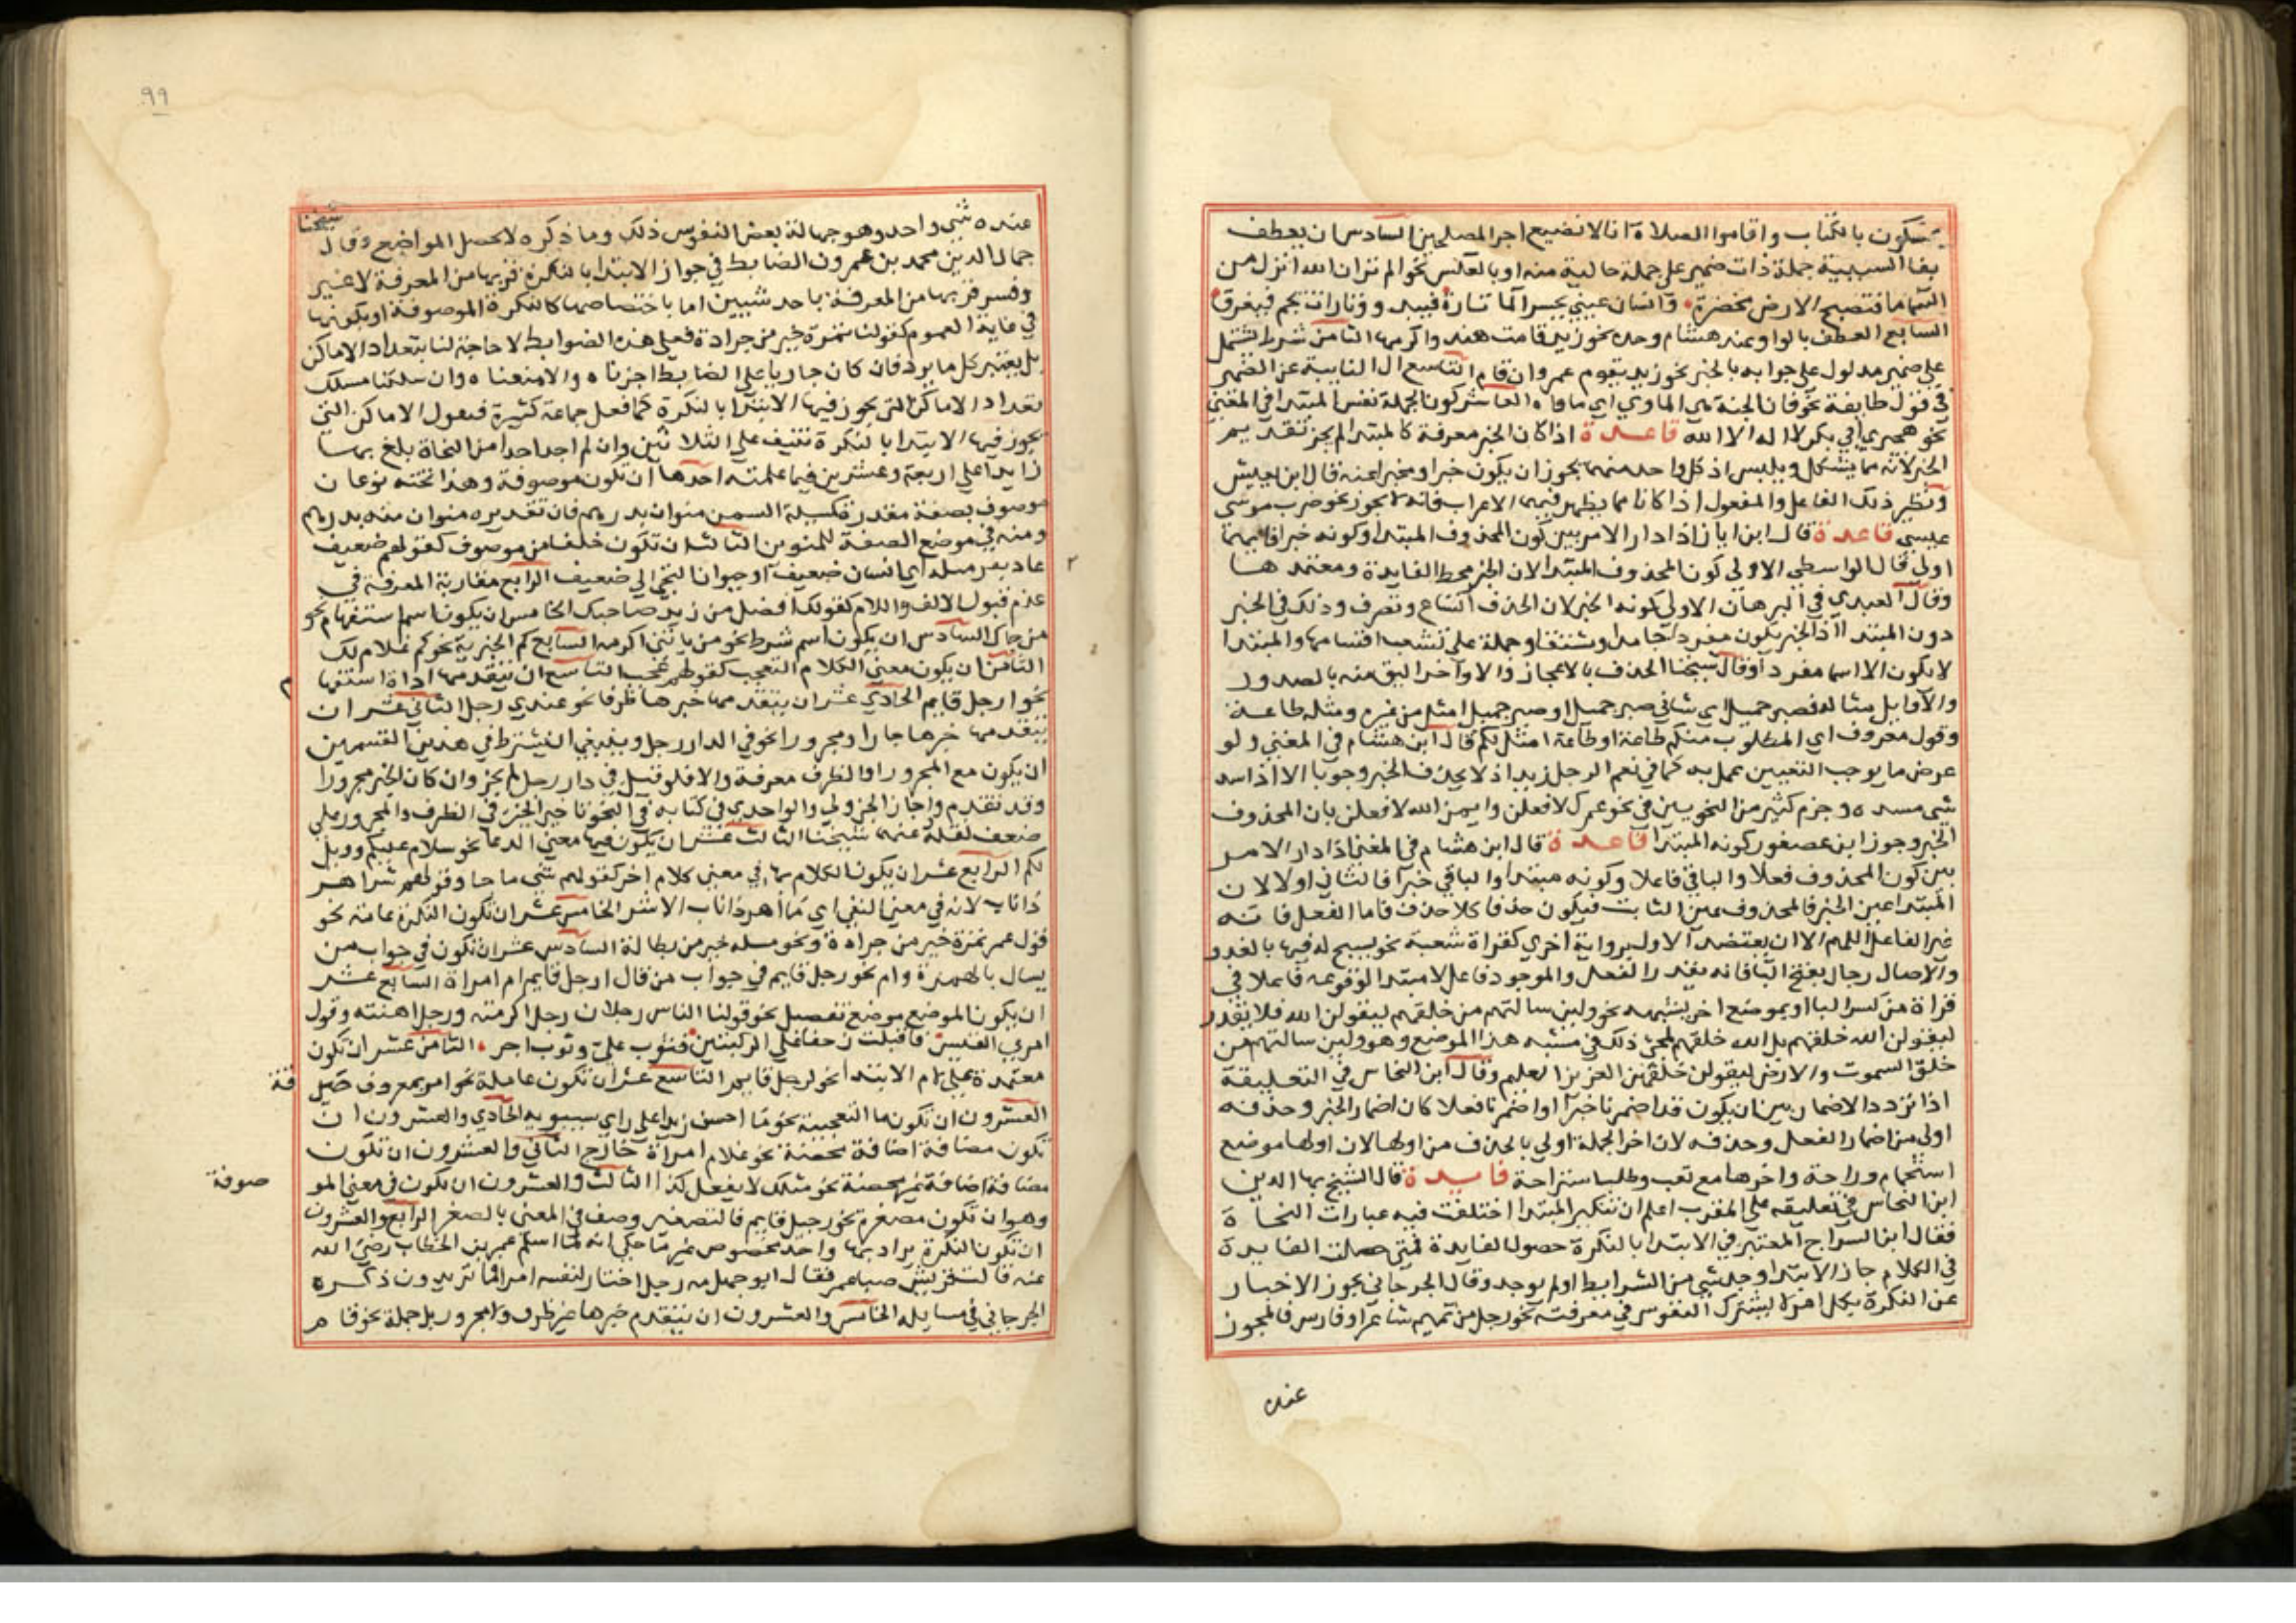 يمسكون بالكتاب واقاموا الصلاة انا لا نضيع اجر المصلحين السادس ان يعطف
بفا السببية جملة ذات ضمير على جملة خالية منه او بالعكس نحو الم تر ان الله انزل من
السما ما فتصبح الارض مخضرة وانسان عيني يحسر الما تارة فيبدو وتارات يجم فيغرق
السابع العطف بالواو عند هشام وحده نحو زيد قامت هند واكرمها الثامن شرط يشتمل
على ضمير مدلول على جوابه بالخبر نحو زيد يقوم عمرو ان قام التاسع ال النايبة عن الضمير
في قول طايفة نحو فان الجنة هي الماوي اي ماواه العاشر كون الجملة نفس المبتدا في المعني
نحو هجيري ابي بكر لا اله الا الله قاعدة اذا كان الخبر معرفة كالمبتدا لم يجز تقديم
الخبر لانه مما يشكل ويلبس اذ كل واحد منهما يجوز ان يكون خبرا ومخبرا عنه قال ابن يعيش
ونظير ذلك الفاعل والمفعول اذا كانا مما لا يظهر فيهما الاعراب فانه لا يجوز نحو ضرب موسى
عيسى قاعدة قال ابن اياز اذا دار الامر بين كون المحذوف المبتدا وكونه خبرا فايهما
اولى قال الواسطي الاولى كون المحذوف المبتدا لان الخبر محط الفايدة ومعتمدها
وقال العبدي في البرهان الاولى كونه الخبر لان الحذف اتساع وتصرف وذلك في الخبر
دون المبتدا اذ الخبر يكون مفردا جامدا ومشتقا وجملة على تشعب اقسامها والمبتدا
لا يكون الا اسما مفردا وقال شيخنا الحذف بالاعجاز والاواخر اليق منه بالصدور
والاوايل مثاله فصبر جميل اي شاني صبر جميل او صبر جميل امثل من غيره ومثله طاعة
وقول معروف اي المطلوب منكم طاعة او طاعة امثل لكم قال ابن هشام في المغني ولو
عرض ما يوجب التعيين عمل به كما في نعم الرجل زيد اذ لا يحذف الخبر وجوبا الا اذا سد
شي مسده وجزم كثير من النحويين في نحو عمرك لافعلن وايمن الله لافعلن بان المحذوف
الخبر وجوز ابن عصفور كونه المبتدا قاعدة قال ابن هشام في المغني اذا دار الامر
بين كون المحذوف فعلا والباقي فاعلا وكونه مبتدا والباقي خبرا فالثاني اولى لان
المبتدا عين الخبر فالمحذوف عين الثابت فيكون حذفا كلا حذف فاما الفعل فانه
غير الفاعل اللهم الا ان يعتضد الاول برواية اخرى كقراة شعبة نحو يسبح له فيها بالغدو
والاصال رجال بفتح البا فانه يقدر الفعل والموجود فاعل لا مبتدا لوقوعه فاعلا في
قراة من كسر البا او بموضع اخر يشبهه نحو ولين سالتهم من خلقهم ليقولن الله فلا يقدر
ليقولن الله خلقهم بل الله خلقهم لمجي ذلك في شبه هذا الموضع وهو ولين سالتهم من
خلق السموت والارض ليقولن خلقهن العزيز العليم وقال ابن النحاس في التعليقة
اذا تردد الاضمار بين ان يكون قد اضمرنا خبرا او اضمرنا فعلا كان اضمار الخبر وحذفه
اولى من اضمار الفعل وحذفه لان اخر الجملة اولى بالحذف من اولها لان اولها موضع
استجمام وراحة واخرها مع تعب وطلب استراحة فايدة قال الشيخ بها الدين
ابن النحاس في تعليقه على المقرب اعلم ان تنكير المبتدا اختلفت فيه عبارات النحاة
فقال ابن السراج المعتبر في الابتدا بالنكرة حصول الفايدة فمتى حصلت الفايدة
في الكلام جاز الابتدا وجد شي من الشرايط او لم يوجد وقال الجرجاني يجوز الاخبار
عن النكرة بكل امر لا يشترك النفوس في معرفته نحو رجل من تميم شاعر او فارس فالمجوز
عنده
٩٩
عنده شي واحد وهو جهالة بعض النفوس ذلك وما ذكره لا يحصل المواضع وقال شيخنا
جمال الدين محمد بن عمرون الضابط في جواز الابتدا بالنكرة قربها من المعرفة لا غير
وفسر قربها من المعرفة باحد شيين اما باختصاصها كالنكرة الموصوفة او بكونها
في غاية العموم كقولنا تمرة خير من جرادة فعلى هذه الضوابط لا حاجة لنا بتعداد الاماكن
بل يعتبر كل ما يرد فان كان جاريا على الضابط اجزناه والا منعناه وان سلكنا مسلك
تعداد الاماكن التي يجوز فيها الابتدا بالنكرة كما فعل جماعة كثيرة فنقول الاماكن التي
يجوز فيها الابتدا بالنكرة تنيف على الثلاثين وان لم اجد احدا من النحاة بلغ بها
زايدا على اربعة وعشرين فيما علمته احدها ان تكون موصوفة وهذا تحته نوعان
موصوف بصفة مقدرة كمسيلة السمن منوان بدرهم فان تقديره منوان منه بدرهم
ومنه في موضع الصفة للمنوين الثالث ان تكون خلفا من موصوف كقولهم ضعيف
عاد بقرملة اي انسان ضعيف او حيوان التجى الى ضعيف الرابع مقاربة المعرفة في
عدم قبول الالف واللام كقولك افضل من زيد صاحبك الخامس ان يكون اسم استفهام نحو
من جاك السادس ان يكون اسم شرط نحو من ياتني اكرمه السابع كم الخبرية نحو كم غلام لك
الثامن ان يكون معنى الكلام التعجب كقولهم عجب التاسع ان يتقدمها اداة استفها م
نحو ارجل قايم الحادي عشر ان يتقدمها خبرها ظرفا نحو عندي رجل الثاني عشر ان
يتقدمها خبرها جارا ومجرورا نحو في الدار رجل وينبغي ان يشترط في هذين القسمين
ان يكون مع المجرور او الظرف معرفة والا فلو قيل في دار رجل لم يجز وان كان الخبر مجرورا
وقد تقدم واجاز الجزولي والواحدي في كتابه في النحو تاخير الخبر في الظرف والمجرور على
ضعف نقله عنهما شيخنا الثالث عشر ان يكون فيها معنى الدعا نحو سلام عليكم وويل
لكم الرابع عشر ان يكون الكلام بها في معنى كلام اخر كقولهم شي ما جا وقولهم شر اهر
ذا ناب لانه في معنى النفي اي ما اهر ذا ناب الا شر الخامس عشر ان تكون النكرة عامة نحو
قول عمر تمرة خير من جرادة ونحو مسلة خير من بطالة السادس عشر ان تكون في جواب من
يسال بالهمزة وام نحو رجل قايم في جواب من قال ارجل قايم ام امراة السابع عشر
ان يكون الموضع موضع تفصيل نحو قولنا الناس رجلان رجل اكرمته ورجل اهنته وقول
امري القيس فاقبلت زحفا على الركبتين فثوب علي وثوب اجر الثامن عشر ان تكون
معتمدة على لام الابتدا نحو لرجل قايم التاسع عشر ان تكون عاملة نحو امر بمعروف
العشرون ان تكون ما التعجبية نحو ما احسن زيدا على راي سيبويه الحادي والعشرون ان
تكون مضافة اضافة محضة نحو غلام امراة خارج الثاني والعشرون ان تكون
مضافة اضافة غير محضة نحو مثلك لا يفعل كذا الثالث والعشرون ان تكون في معنى المو صوفة
وهو ان تكون مصغرة نحو رجيل قايم فالتصغير وصف في المعنى بالصغر الرابع والعشرون
ان تكون النكرة يراد بها واحد مخصوص نحو ما حكي انه لما اسلم عمر بن الخطاب رضي الله
عنه قالت قريش صبا عمر فقال ابو جهل مه رجل اختار لنفسه امرا فما تريدون ذكره
الجرجاني في مسايله الخامس والعشرون ان يتقدم خبرها غير ظرف ولا مجرور بل جملة نحو قام